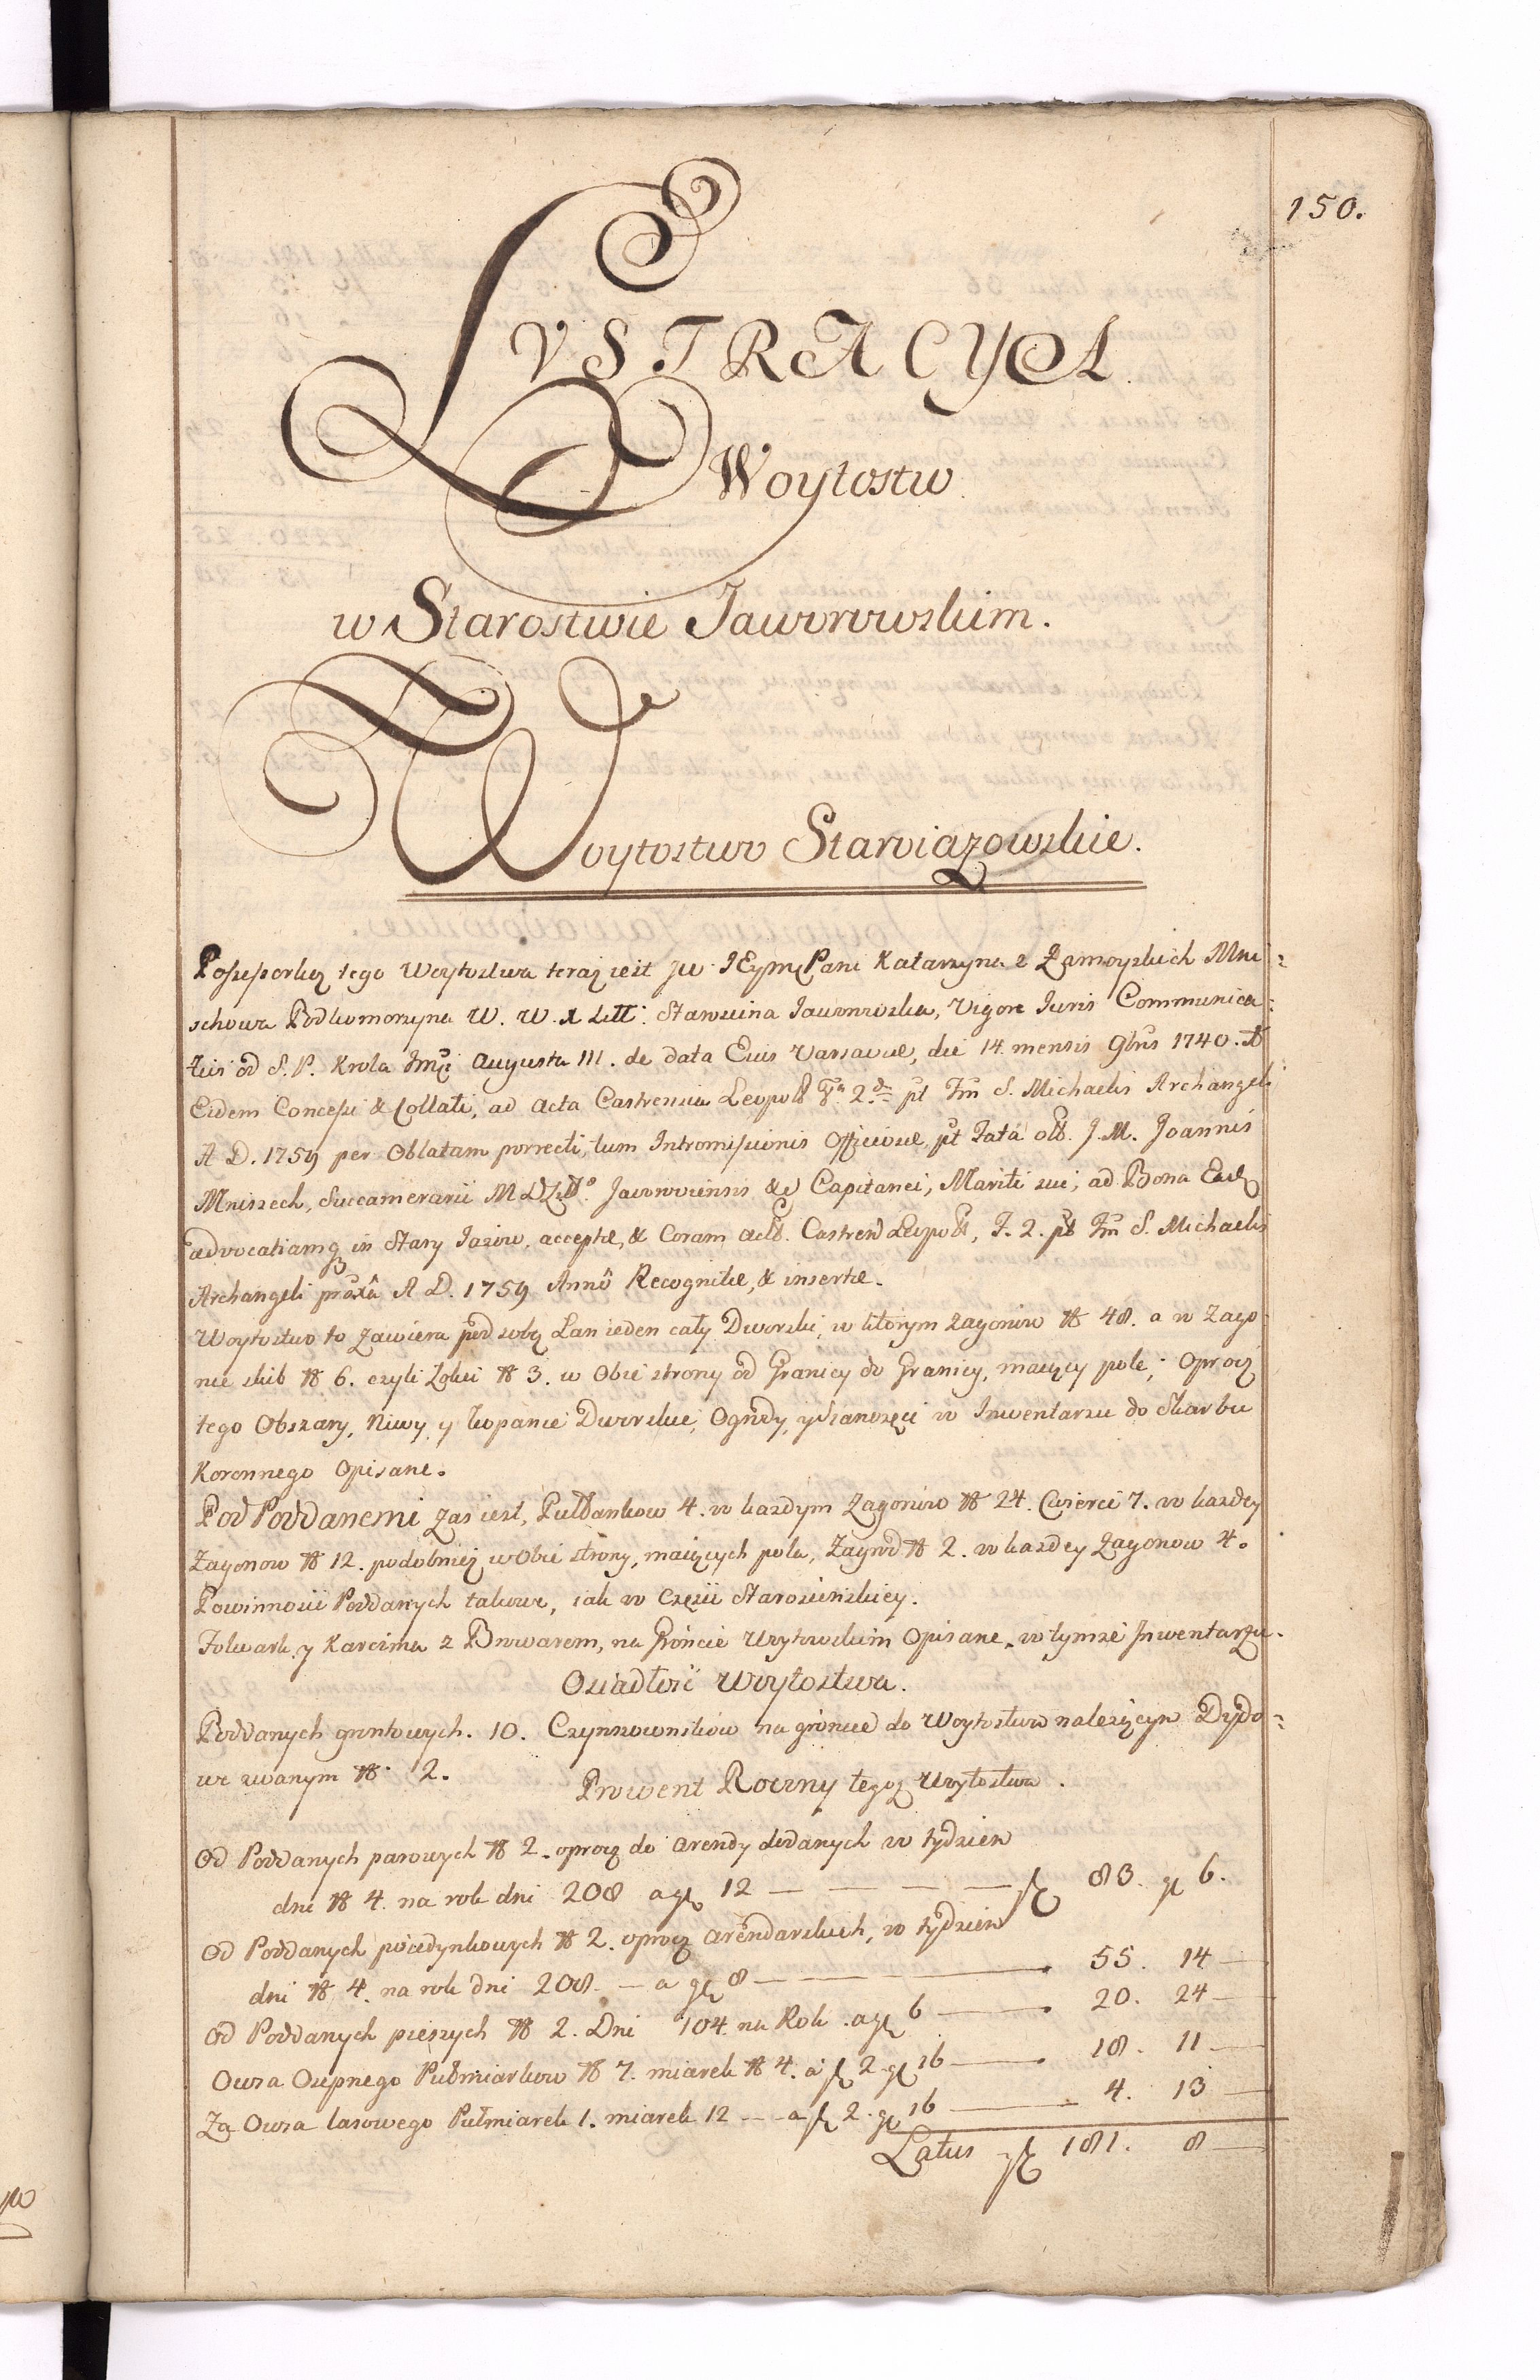 150.
LVSTRACYA
Woytostw
w Starostwie Jaworowskim.
Woytostwo Staroiazowskie.
Possessorką tego Woytostwa teraz iest JW JEymć Pani Katarzyna z Zamoyskich Mni=
schowa Podkomorzyna W. W. X Litt: Starościna Jaworowska, Vigore Iuris Communica=
tivi od S. P. Krola Jmći Augusta III. de data Eius Varsaviæ, die 14 mensis 9bris 1740. A
Eidem Concessi & Collati, ad Acta Castrensia Leopol. Fr 2da pt Fm S. Michaelis Archangeli
A D. 1759 per Oblatam porrecti, tum Intromissionis Officiosæ pt Fata olb. J. M. Joannis
Mniszech, Succamerarii M D Lit. Jaworoviensis &c Capitanei, Mariti sui, ad Bona Ead
advocatiamq in Stary Jazow, acceptæ, & Coram Actb. Castren Leopol, F. 2. pt Fm S. Michaelis
Archangeli proxa A D. 1759 Anno Recognitæ, & insertæ.
Woytostwo to zawiera pod sobą Łan ieden cały Dworski, w ktorym zagonow N 48. a w Zago=
nie skib N 6. czyli Zołki N 3. w Obie strony od Granicy do Granicy, maiący pole, Oprocz
tego Obszary, Niwy, y kopanie Dworskie, Ogrody, y Sianożęci w Inwentarzu do Skarbu
Koronnego Opisane.
Pod Poddanemi zaś iest, Pułłankow 4. w każdym Zagonow N 24. Cwierci 7. w każdey
Zagonow N 12. podobnież w Obie strony, maiących pola, Zagrod N 2. w każdey Zagonow 4.
Powinności Poddanych takowe, iak w Części Starościńskiey.
Folwark, y Karczma z Browarem, na Gróncie Woytowskim Opisane, w tymże Inwentarzu.
Osiadłość Woytostwa.
Poddanych gruntowych. 10. Czynszownikow na gróncie do Woytostwa należącym Dydo=
we zwanym N 2.
Prowent Roczny tegoż Woytostwa.
Od Poddanych parowych N 2. oprocz do Arendy dodanych w tydzien
dni N 4. na rok dni 208 a gr 12 — — — — zł 83. gr 6.
Od Poddanych poiedynkowych N 2. oprocz Arendarskich, w tydzien
dni N 4. na rok dni 208. — a gr 8 — 55. 14 —
Od Poddanych pieszych N 2. Dni 104 na Rok a gr 6 — 20. 24 —
Owsa Osepnego Pułmiarkow N 7. miarek N 4. a zł 2 gr 16 — 18. 11 —
Za Owsa lasowego Pułmiarek 1. miarek 12 — a zł 2. gr 16 — 4. 13 —
Latus zł 181. 8 —